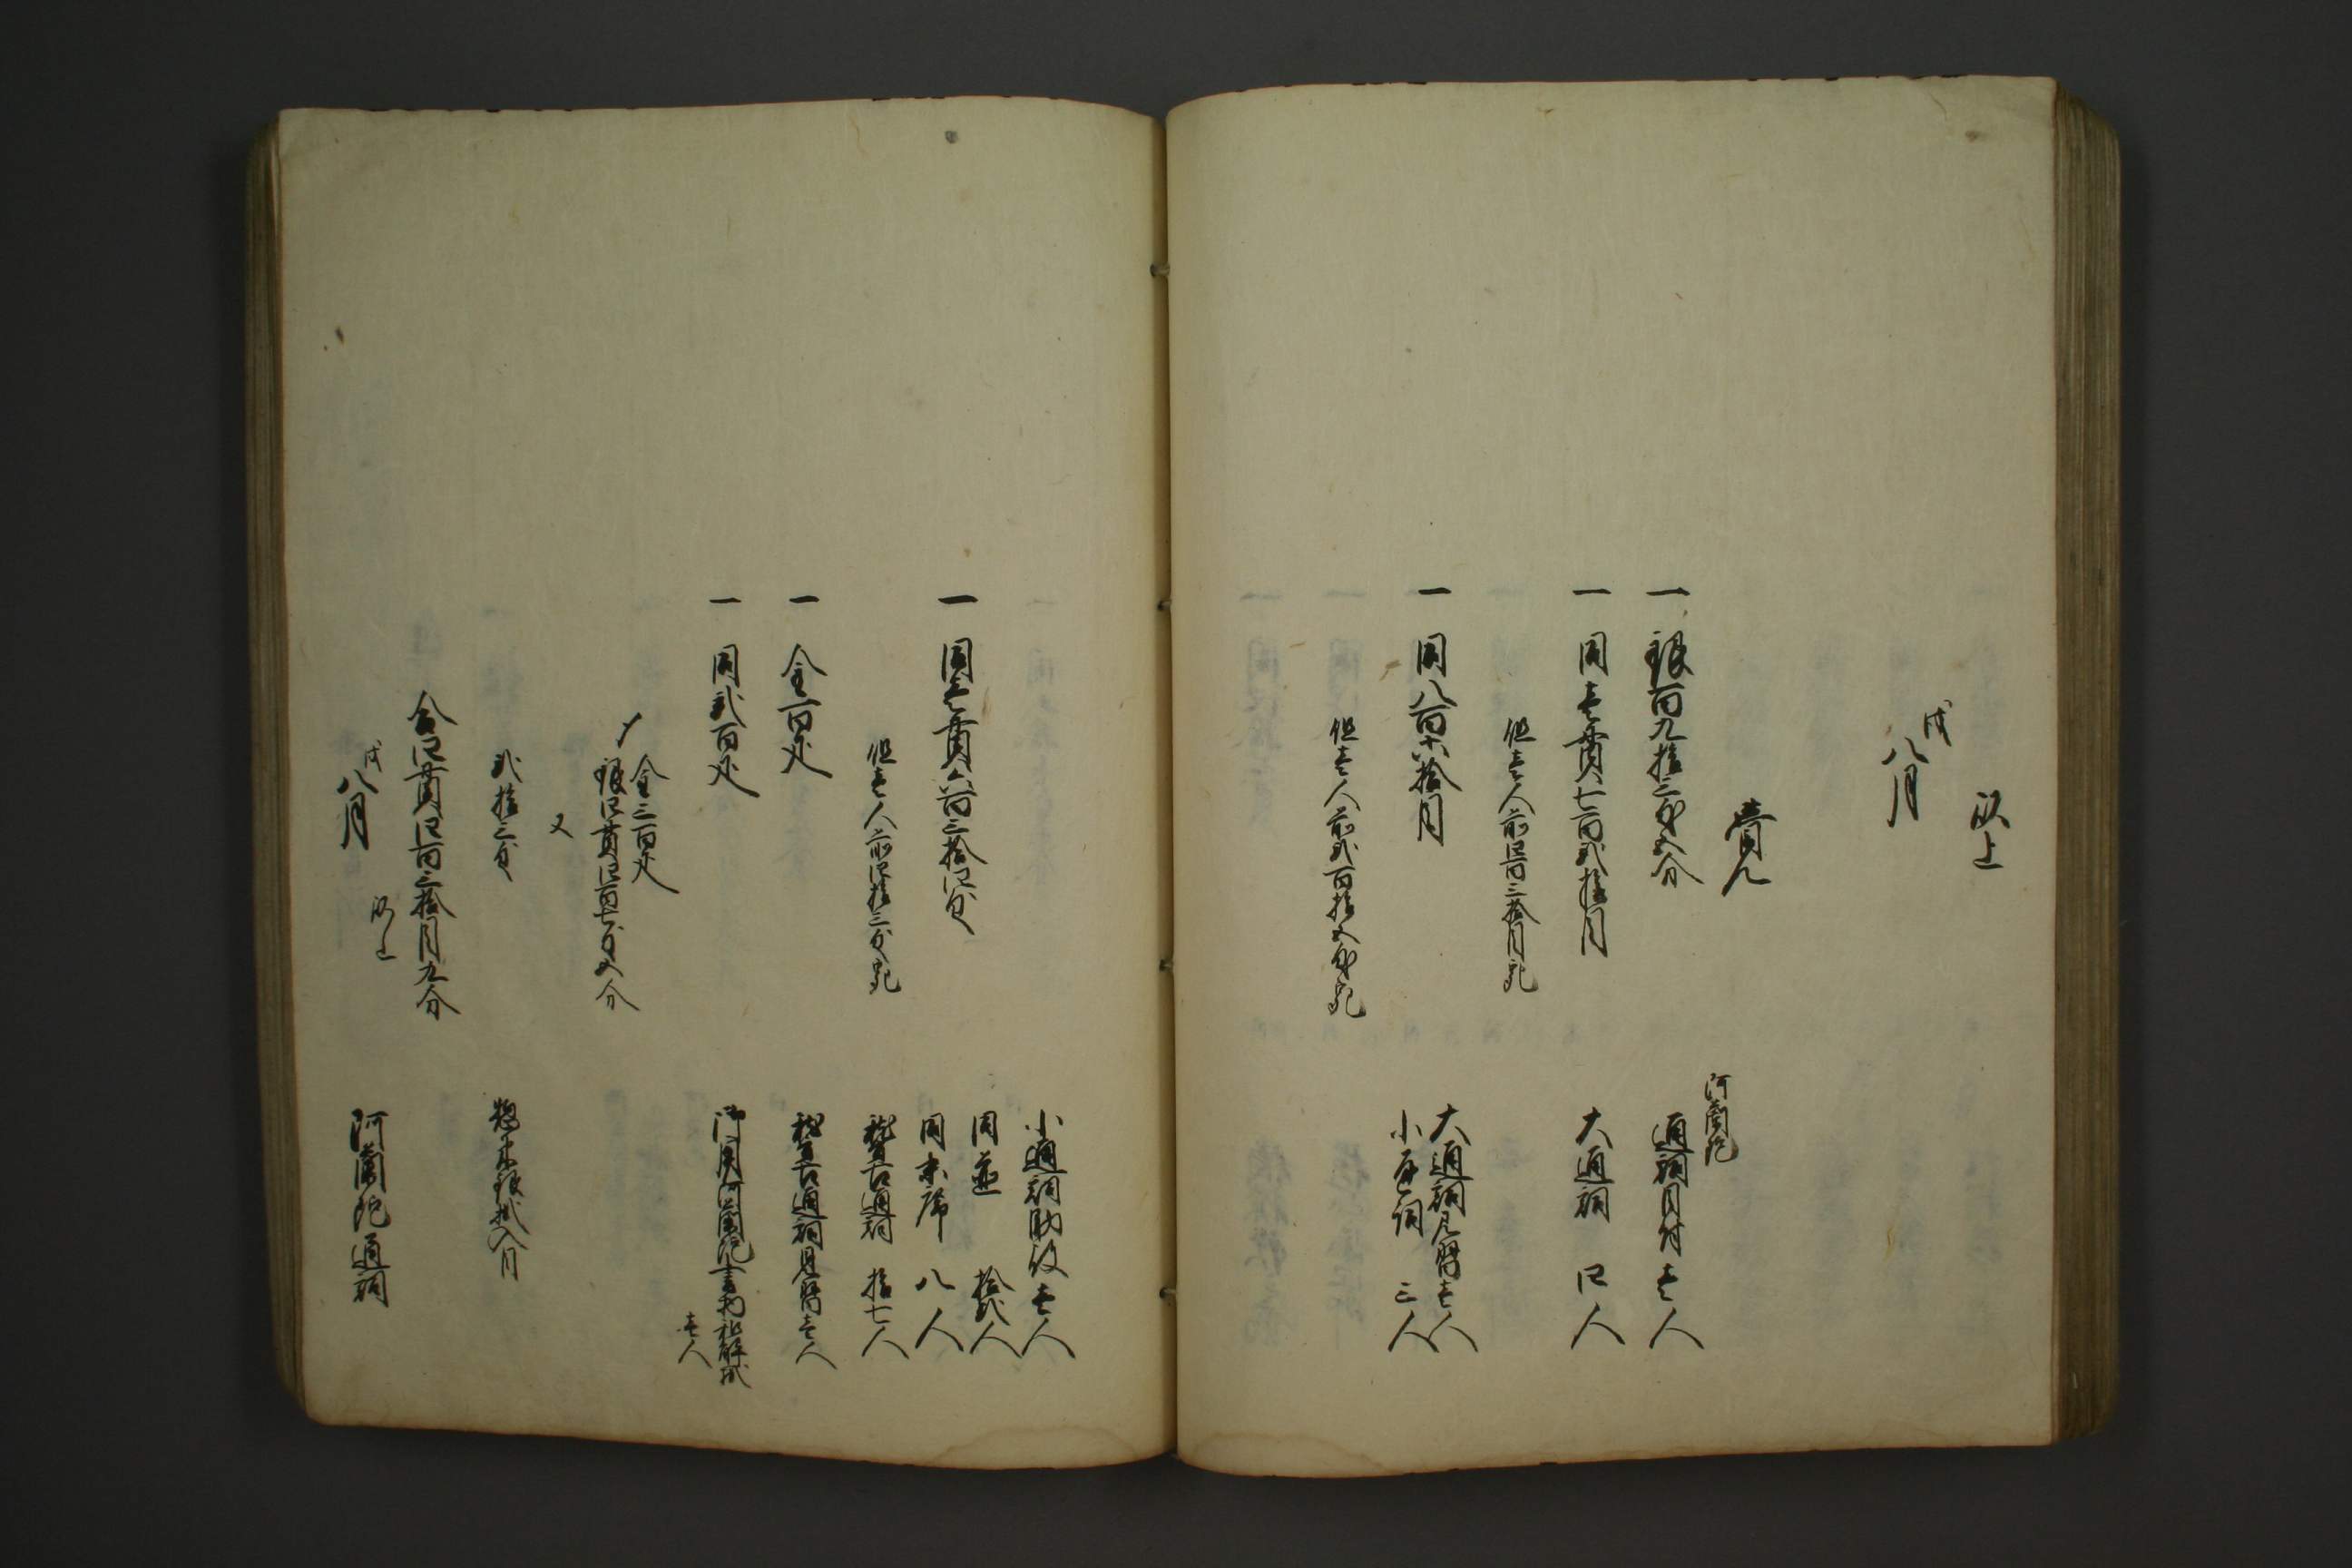 以上
戌
八月
覚
阿蘭陀
一 銀百九拾三匁五分 通詞目付 壱人
一 同壱貫七百弐拾目 大通詞 四人
但壱人前四百三拾目宛
一 同八百六拾目 大通詞見習壱人
小通詞 三人
但壱人前弐百拾五匁宛
小通詞助役 壱人
一 同壱貫六百三拾四匁 同並 拾弐人
同末席 八人
但壱人前四拾三匁宛 稽古通詞 拾七人
一 金百疋 稽古通詞見習壱人
一 同弐百疋 御用阿蘭陀書物和解掛
壱人
金三百疋
〆
銀四貫四百七匁五分
又
弐拾三匁 惣末銀掛入目
合四貫四百三拾目九分
以上
戌
八月 阿蘭陀通詞